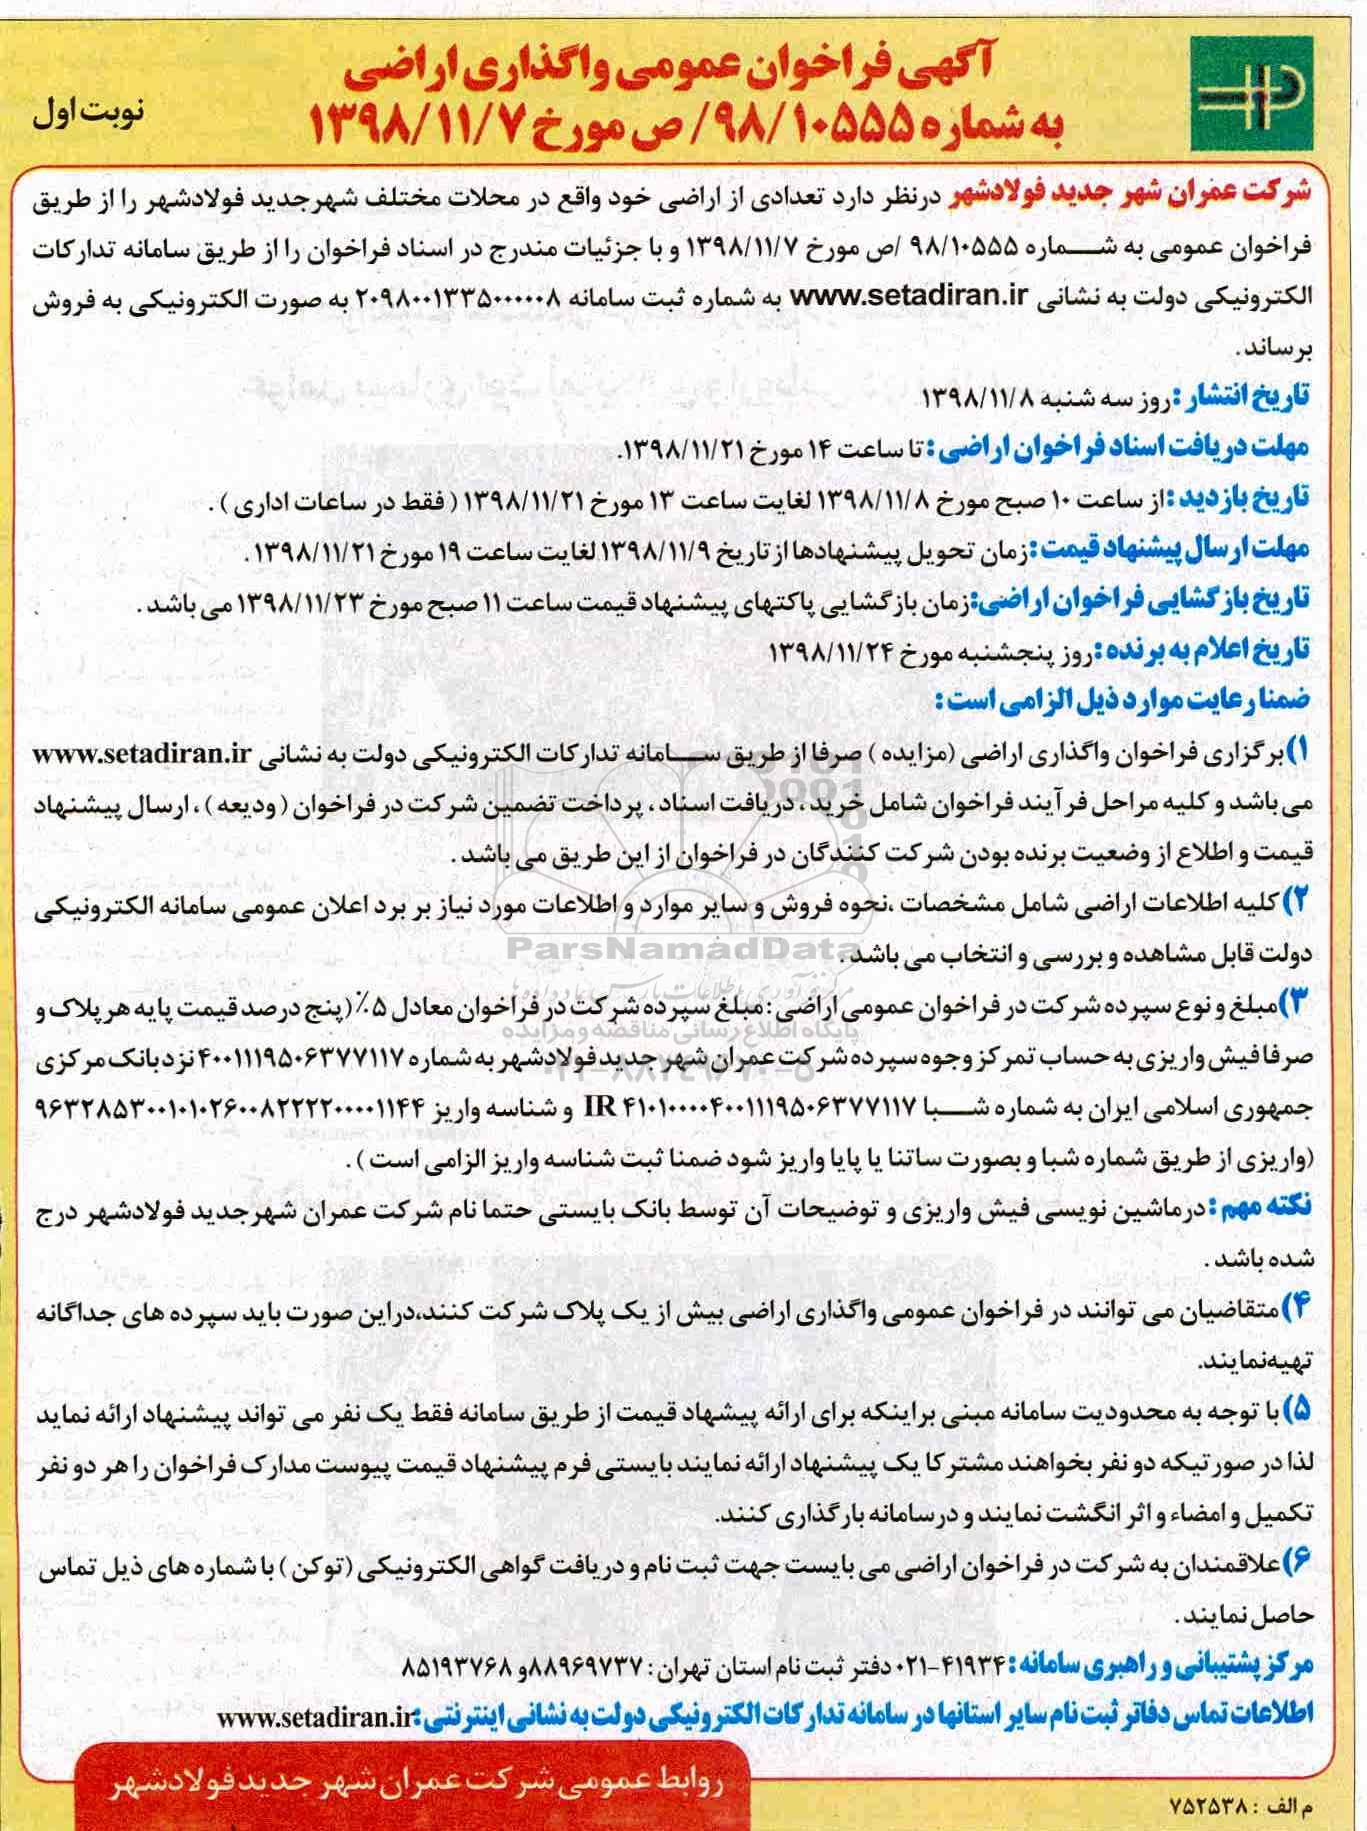 آگهی فراخوان عمومی واگذاری اراضی
به شماره ۹۸/۱۰۵۵۵/ ص مورخ ۱۳۹۸/۱۱/۷
نوبت اول
شرکت عمران شهر جدید فولادشهر درنظر دارد تعدادی از اراضی خود واقع در محلات مختلف شهرجدید فولادشهر را از طریق
فراخوان عمومی به شماره ۹۸/۱۰۵۵۵ /ص مورخ ۱۳۹۸/۱۱/۷ و با جزئیات مندرج در اسناد فراخوان را از طریق سامانه تدارکات
الکترونیکی دولت به نشانی www.setadiran.ir به شماره ثبت سامانه ۲۰۹۸۰۰۱۳۳۵۰۰۰۰۰۸ به صورت الکترونیکی به فروش
برساند.
تاریخ انتشار :روز سه شنبه ۱۳۹۸/۱۱/۸
مهلت دریافت اسناد فراخوان اراضی : تا ساعت ۱۴ مورخ ۱۳۹۸/۱۱/۲۱.
تاریخ بازدید :از ساعت ۱۰ صبح مورخ ۱۳۹۸/۱۱/۸ لغایت ساعت ۱۳ مورخ ۱۳۹۸/۱۱/۲۱ ( فقط در ساعات اداری ) .
مهلت ارسال پیشنهاد قیمت :زمان تحویل پیشنهادها از تاریخ ۱۳۹۸/۱۱/۹ لغایت ساعت ۱۹ مورخ ۱۳۹۸/۱۱/۲۱ .
تاریخ بازگشایی فراخوان اراضی:زمان بازگشایی پاکتهای پیشنهاد قیمت ساعت ۱۱ صبح مورخ ۱۳۹۸/۱۱/۲۳ می باشد .
تاریخ اعلام به برنده :روز پنجشنبه مورخ ۱۳۹۸/۱۱/۲۴
ضمنا رعایت موارد ذیل الزامی است :
۱)برگزاری فراخوان واگذاری اراضی (مزایده ) صرفا از طریق سامانه تدارکات الکترونیکی دولت به نشانی www.setadiran.ir
می باشد و کلیه مراحل فرآیند فراخوان شامل خرید ، دریافت اسناد ، پرداخت تضمین شرکت در فراخوان ( ودیعه ) ، ارسال پیشنهاد
قیمت و اطلاع از وضعیت برنده بودن شرکت کنندگان در فراخوان از این طریق می باشد .
۲)کلیه اطلاعات اراضی شامل مشخصات ،نحوه فروش و سایر موارد و اطلاعات مورد نیاز بر برد اعلان عمومی سامانه الکترونیکی
ParsNamadData
دولت قابل مشاهده و بررسی و انتخاب می باشد .
مرکز فرآوری اطلاعات پارس نماد داده ها
۳)مبلغ و نوع سپرده شرکت در فراخوان عمومی اراضی : مبلغ سپرده شرکت در فراخوان معادل ۵٪ (پنج درصد قیمت پایه هر پلاک و
پایگاه اطلاع رسانی مناقصه و مزایده
صرفا فیش واریزی به حساب تمرکز وجوه سپرده شرکت عمران شهر جدید فولادشهر به شماره ۴۰۰۱۱۱۹۵۰۶۳۷۷۱۱۷ نزد بانک مرکزی
جمهوری اسلامی ایران به شماره شبا IR ۴۱۰۱۰۰۰۰۴۰۰۱۱۱۹۵۰۶۳۷۷۱۱۷ و شناسه واریز ۹۶۳۲۸۵۳۰۰۱۰۱۰۲۶۰۰۸۲۲۲۲۰۰۰۰۱۱۴۴
(واریزی از طریق شماره شبا و بصورت ساتنا یا پایا واریز شود ضمنا ثبت شناسه واریز الزامی است ) .
نکته مهم :درماشین نویسی فیش واریزی و توضیحات آن توسط بانک بایستی حتما نام شرکت عمران شهرجدید فولادشهر درج
شده باشد .
۴)متقاضیان می توانند در فراخوان عمومی واگذاری اراضی بیش از یک پلاک شرکت کنند،دراین صورت باید سپرده های جداگانه
تهیه‌نمایند.
۵)با توجه به محدودیت سامانه مبنی براینکه برای ارائه پیشهاد قیمت از طریق سامانه فقط یک نفر می تواند پیشنهاد ارائه نماید
لذا در صورتیکه دو نفر بخواهند مشترکا یک پیشنهاد ارائه نمایند بایستی فرم پیشنهاد قیمت پیوست مدارک فراخوان را هر دو نفر
تکمیل و امضاء و اثر انگشت نمایند و درسامانه بارگذاری کنند.
۶)علاقمندان به شرکت در فراخوان اراضی می بایست جهت ثبت نام و دریافت گواهی الکترونیکی (توکن ) با شماره های ذیل تماس
حاصل نمایند .
مرکز پشتیبانی و راهبری سامانه : ۰۲۱-۴۱۹۳۴ دفتر ثبت نام استان تهران : ۸۸۹۶۹۷۳۷و ۸۵۱۹۳۷۶۸
اطلاعات تماس دفاتر ثبت نام سایر استانها در سامانه تدارکات الکترونیکی دولت به نشانی اینترنتی:www.setadiran.ir
روابط عمومی شرکت عمران شهر جدید فولادشهر
م الف : ۷۵۲۵۳۸